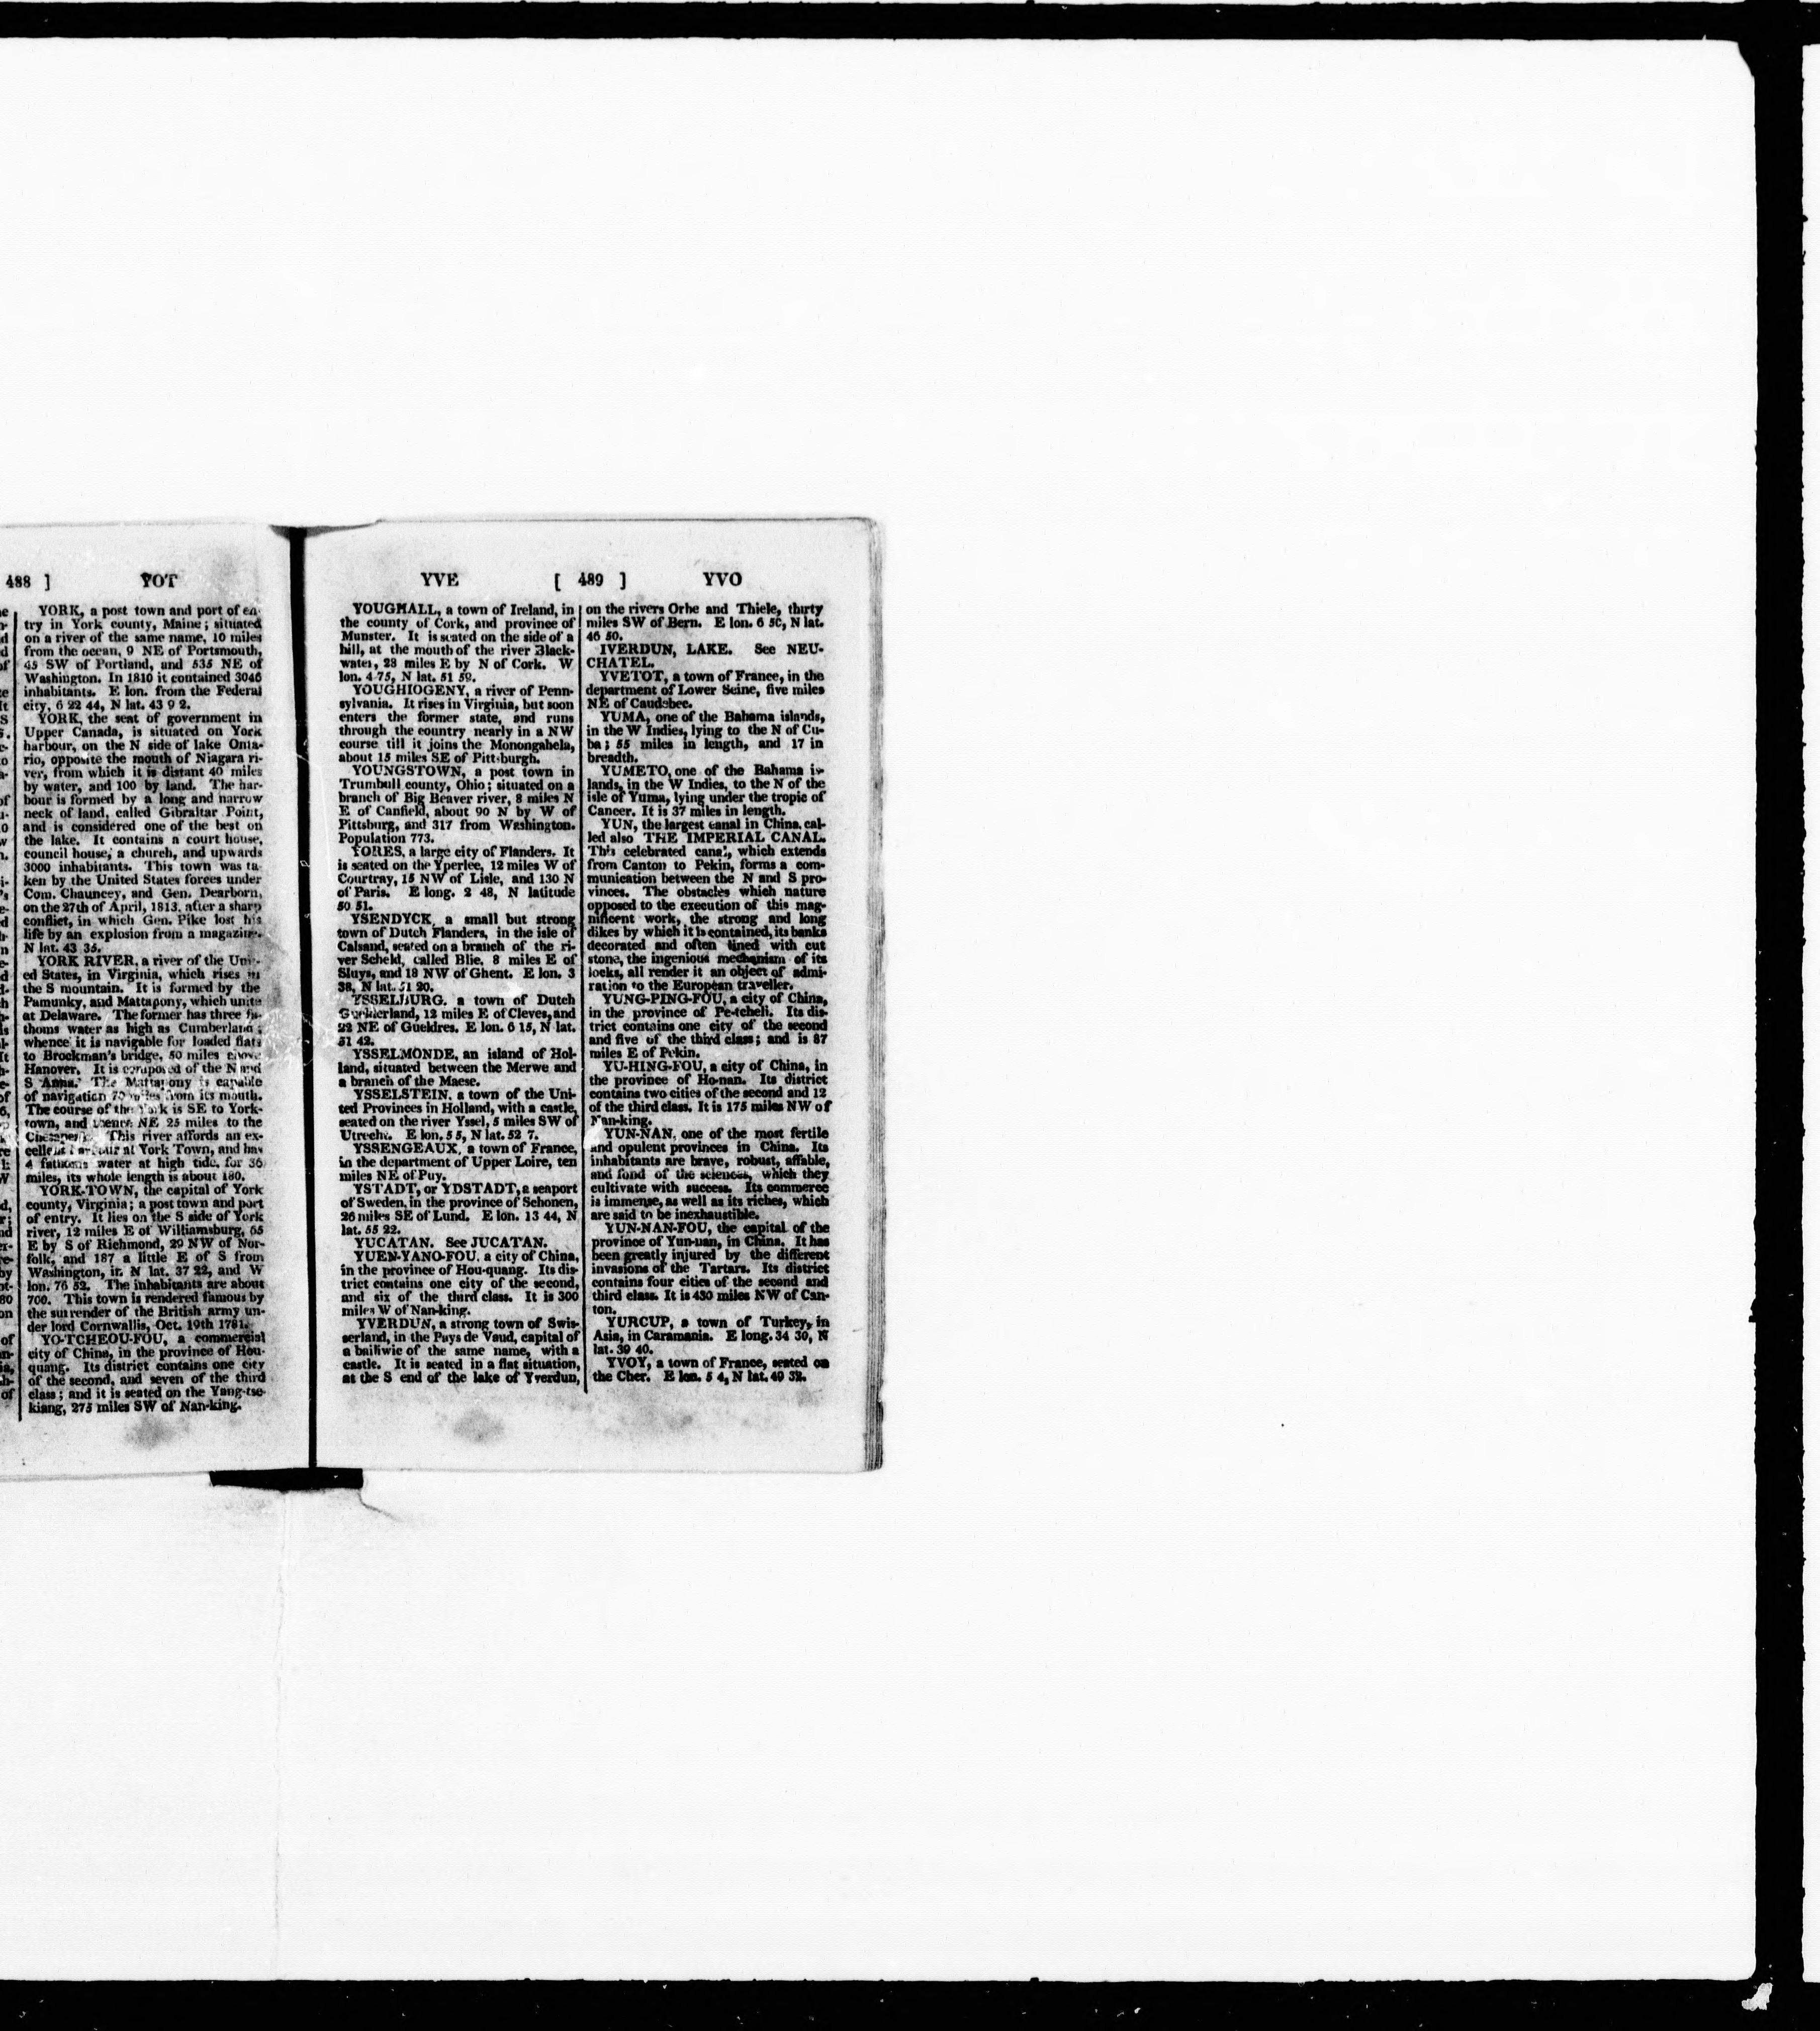 488 ] YOT
YORK, a post town and port of en-
try in York county, Maine; situated
on a river of the same name, 10 miles
from the ocean, 9 NE of Portsmouth,
45 SW of Portland, and 535 NE of
Washington. In 1810 it contained 3046
inhabitants. E lon. from the Federal
city, 6 22 44, N lat. 43 9 2.
YORK, the seat of government in
Upper Canada, is situated on York
harbour, on the N side of lake Onta-
rio, opposite the mouth of Niagara ri-
ver, from which it is distant 40 miles
by water, and 100 by land. The har-
bour is formed by a long and narrow
neck of land, called Gibraltar Point,
and is considered one of the best on
the lake. It contains a court house,
council house, a church, and upwards
3000 inhabitants. This town was ta-
ken by the United States forces under
Com. Chauncey, and Gen. Dearborn,
on the 27th of April, 1813, after a sharp
conflict, in which Gen. Pike lost his
life by an explosion from a magazine.
N lat. 43 35.
YORK RIVER, a river of the Unit-
ed States, in Virginia, which rises in
the S mountain. It is formed by the
Pamunky, and Mattapony, which unite
at Delaware. The former has three fa-
thoms water as high as Cumberland;
whence it is navigable for loaded flats
to Brockman's bridge, 50 miles above
Hanover. It is composed of the N and
S Anna. The Mattapony is capable
of navigation 70 miles from its mouth.
The course of the York is SE to York-
town, and thence NE 25 miles to the
Chesapeak. This river affords an ex-
cellent harbour at York Town, and has
4 fathoms water at high tide, for 36
miles, its whole length is about 180.
YORK-TOWN, the capital of York
county, Virginia; a post town and port
of entry. It lies on the S side of York
river, 12 miles E of Williamsburg, 65
E by S of Richmond, 29 NW of Nor-
folk, and 187 a little E of S from
Washington, in N lat. 37 22, and W
lon. 76 52. The inhabitants are about
700. This town is rendered famous by
the surrender of the British army un-
der lord Cornwallis, Oct. 19th 1781.
YO-TCHEOU-FOU, a commercial
city of China, in the province of Hou-
quang. Its district contains one city
of the second, and seven of the third
class; and it is seated on the Yang-tse-
kiang, 275 miles SW of Nan-king.
YVE [ 489 ] YVO
YOUGHALL, a town of Ireland, in
the county of Cork, and province of
Munster. It is seated on the side of a
hill, at the mouth of the river Black-
water, 28 miles E by N of Cork. W
lon. 4 75, N lat. 51 59.
YOUGHIOGENY, a river of Penn-
sylvania. It rises in Virginia, but soon
enters the former state, and runs
through the country nearly in a NW
course till it joins the Monongahela,
about 15 miles SE of Pittsburgh.
YOUNGSTOWN, a post town in
Trumbull county, Ohio; situated on a
branch of Big Beaver river, 8 miles N
E of Canfield, about 90 N by W of
Pittsburg, and 317 from Washington.
Population 773.
YORES, a large city of Flanders. It
is seated on the Yperlee, 12 miles W of
Courtray, 15 NW of Lisle, and 130 N
of Paris. E long. 2 48, N latitude
50 51.
YSENDYCK, a small but strong
town of Dutch Flanders, in the isle of
Calsand, seated on a branch of the ri-
ver Scheld, called Blie, 8 miles E of
Sluys, and 18 NW of Ghent. E lon. 3
38, N lat. 51 20.
YSSELBURG, a town of Dutch
Guelderland, 12 miles E of Cleves, and
22 NE of Gueldres. E lon. 6 15, N lat.
51 42.
YSSELMONDE, an island of Hol-
land, situated between the Merwe and
a branch of the Maese.
YSSELSTEIN, a town of the Uni-
ted Provinces in Holland, with a castle,
seated on the river Yssel, 5 miles SW of
Utrecht. E lon. 5 5, N lat. 52 7.
YSSENGEAUX, a town of France,
in the department of Upper Loire, ten
miles NE of Puy.
YSTADT, or YDSTADT, a seaport
of Sweden, in the province of Schonen,
26 miles SE of Lund. E lon. 13 44, N
lat. 55 22.
YUCATAN. See JUCATAN.
YUEN-YANO-FOU, a city of China,
in the province of Hou-quang. Its dis-
trict contains one city of the second,
and six of the third class. It is 300
miles W of Nan-king.
YVERDUN, a strong town of Swis-
serland, in the Pays de Vaud, capital of
a bailiwic of the same name, with a
castle. It is seated in a flat situation,
at the S end of the lake of Yverdun,
on the rivers Orbe and Thiele, thirty
miles SW of Bern. E lon. 6 50, N lat.
46 50.
IVERDUN, LAKE. See NEU-
CHATEL.
YVETOT, a town of France, in the
department of Lower Seine, five miles
NE of Caudebec.
YUMA, one of the Bahama islands,
in the W Indies, lying to the N of Cu-
ba; 55 miles in length, and 17 in
breadth.
YUMETO, one of the Bahama is-
lands, in the W Indies, to the N of the
isle of Yuma, lying under the tropic of
Cancer. It is 37 miles in length.
YUN, the largest canal in China, cal-
led also THE IMPERIAL CANAL.
This celebrated canal, which extends
from Canton to Pekin, forms a com-
munication between the N and S pro-
vinces. The obstacles which nature
opposed to the execution of this mag-
nificent work, the strong and long
dikes by which it is contained, its banks
decorated and often lined with cut
stone, the ingenious mechanism of its
locks, all render it an object of admi-
ration to the European traveller.
YUNG-PING-FOU, a city of China,
in the province of Pe-tcheli. Its dis-
trict contains one city of the second
and five of the third class; and is 87
miles E of Pekin.
YU-HING-FOU, a city of China, in
the province of Ho-nan. Its district
contains two cities of the second and 12
of the third class. It is 175 miles NW of
Nan-king.
YUN-NAN, one of the most fertile
and opulent provinces in China. Its
inhabitants are brave, robust, affable,
and fond of the sciences, which they
cultivate with success. Its commerce
is immense, as well as its riches, which
are said to be inexhaustible.
YUN-NAN-FOU, the capital of the
province of Yun-nan, in China. It has
been greatly injured by the different
invasions of the Tartars. Its district
contains four cities of the second and
third class. It is 430 miles NW of Can-
ton.
YURCUP, a town of Turkey, in
Asia, in Caramania. E long. 34 30, N
lat. 39 40.
YVOY, a town of France, seated on
the Cher. E lon. 5 4, N lat. 49 32.